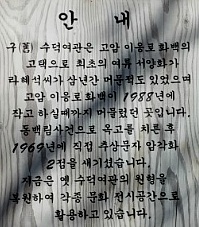 안 내
구(舊) 수덕여관은 고암 이응로 화백의
고택으로 최초의 여류 서양화가
라혜석씨가 삼년간 머문적도 있었으며
고암 이응로 화백이 1988년에
작고하실때까지 머물렀던 곳입니다.
동백림사건으로 옥고를 치른 후
1969년에 직접 추상문자 암각화
2점을 새기셨습니다.
지금은 옛 수덕여관의 원형을
복원하여 각종 문화 전시공간으로
활용하고 있습니다.